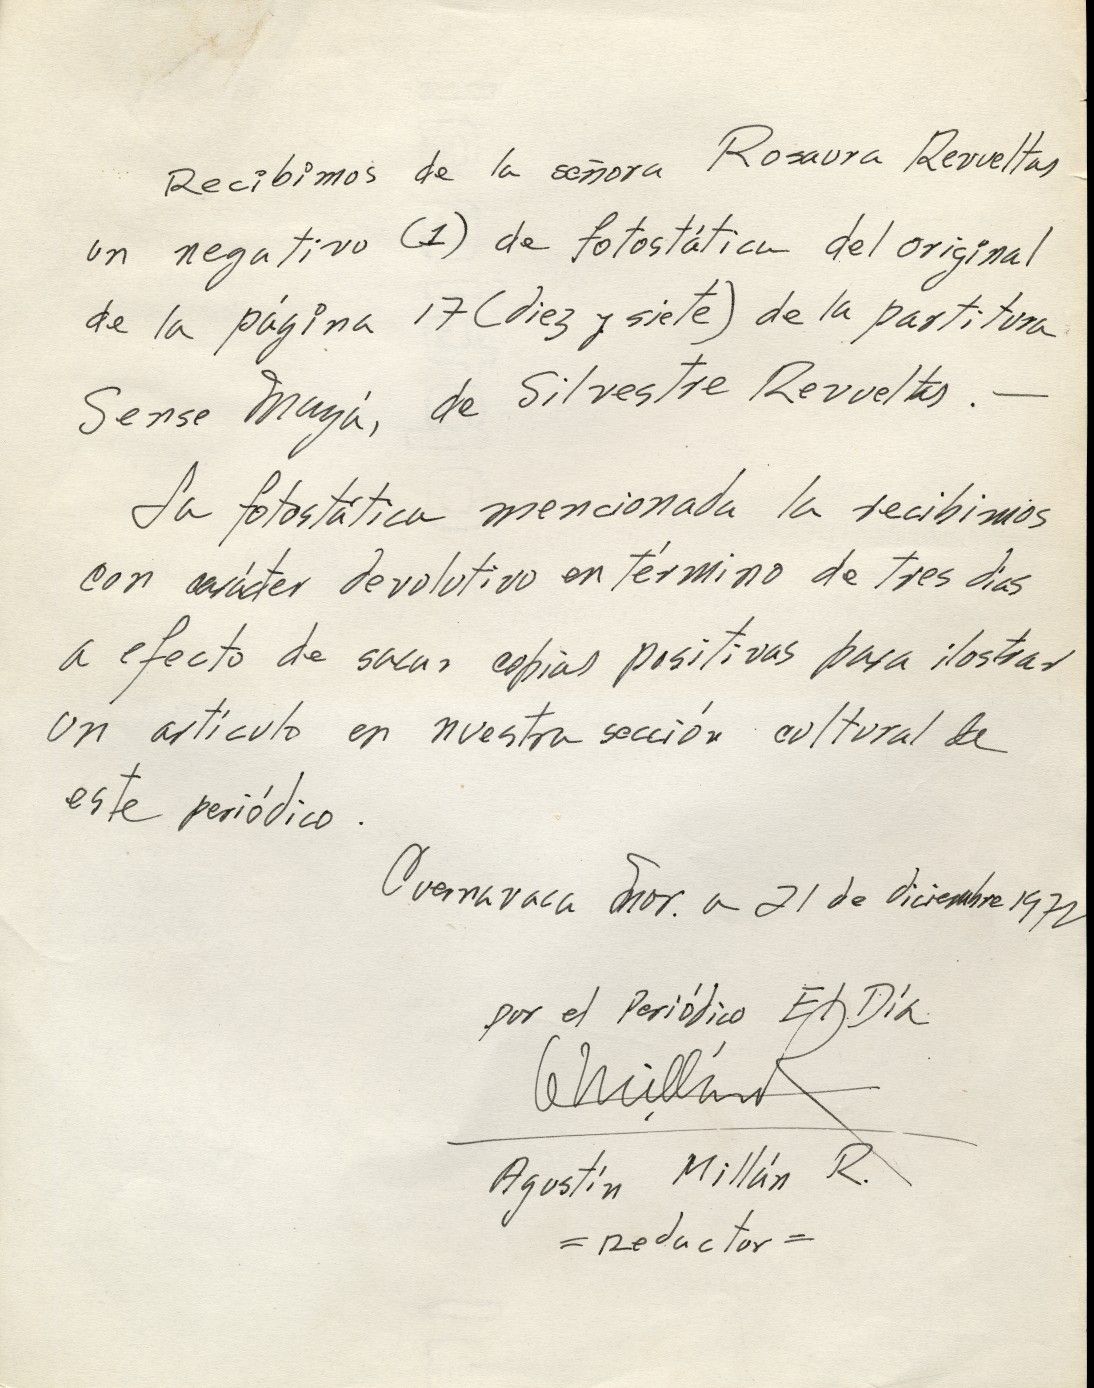 Recibimos de la señora Rosaura Revueltas
un negativo (1) de fotostática del original
de la página 17 (diez y siete) de la partitura
Sense Mayá, de Silvestre Revueltas. —
La fotostática mencionada la recibimos
con carácter devolutivo en término de tres días
a efecto de sacar copias positivas para ilostrar
un artículo en nuestra sección cultural de
este periódico.
Cuernavaca Mor. a 21 de diciembre 1972
por el Periódico El Día
Agustín Millán R.
= Redactor =